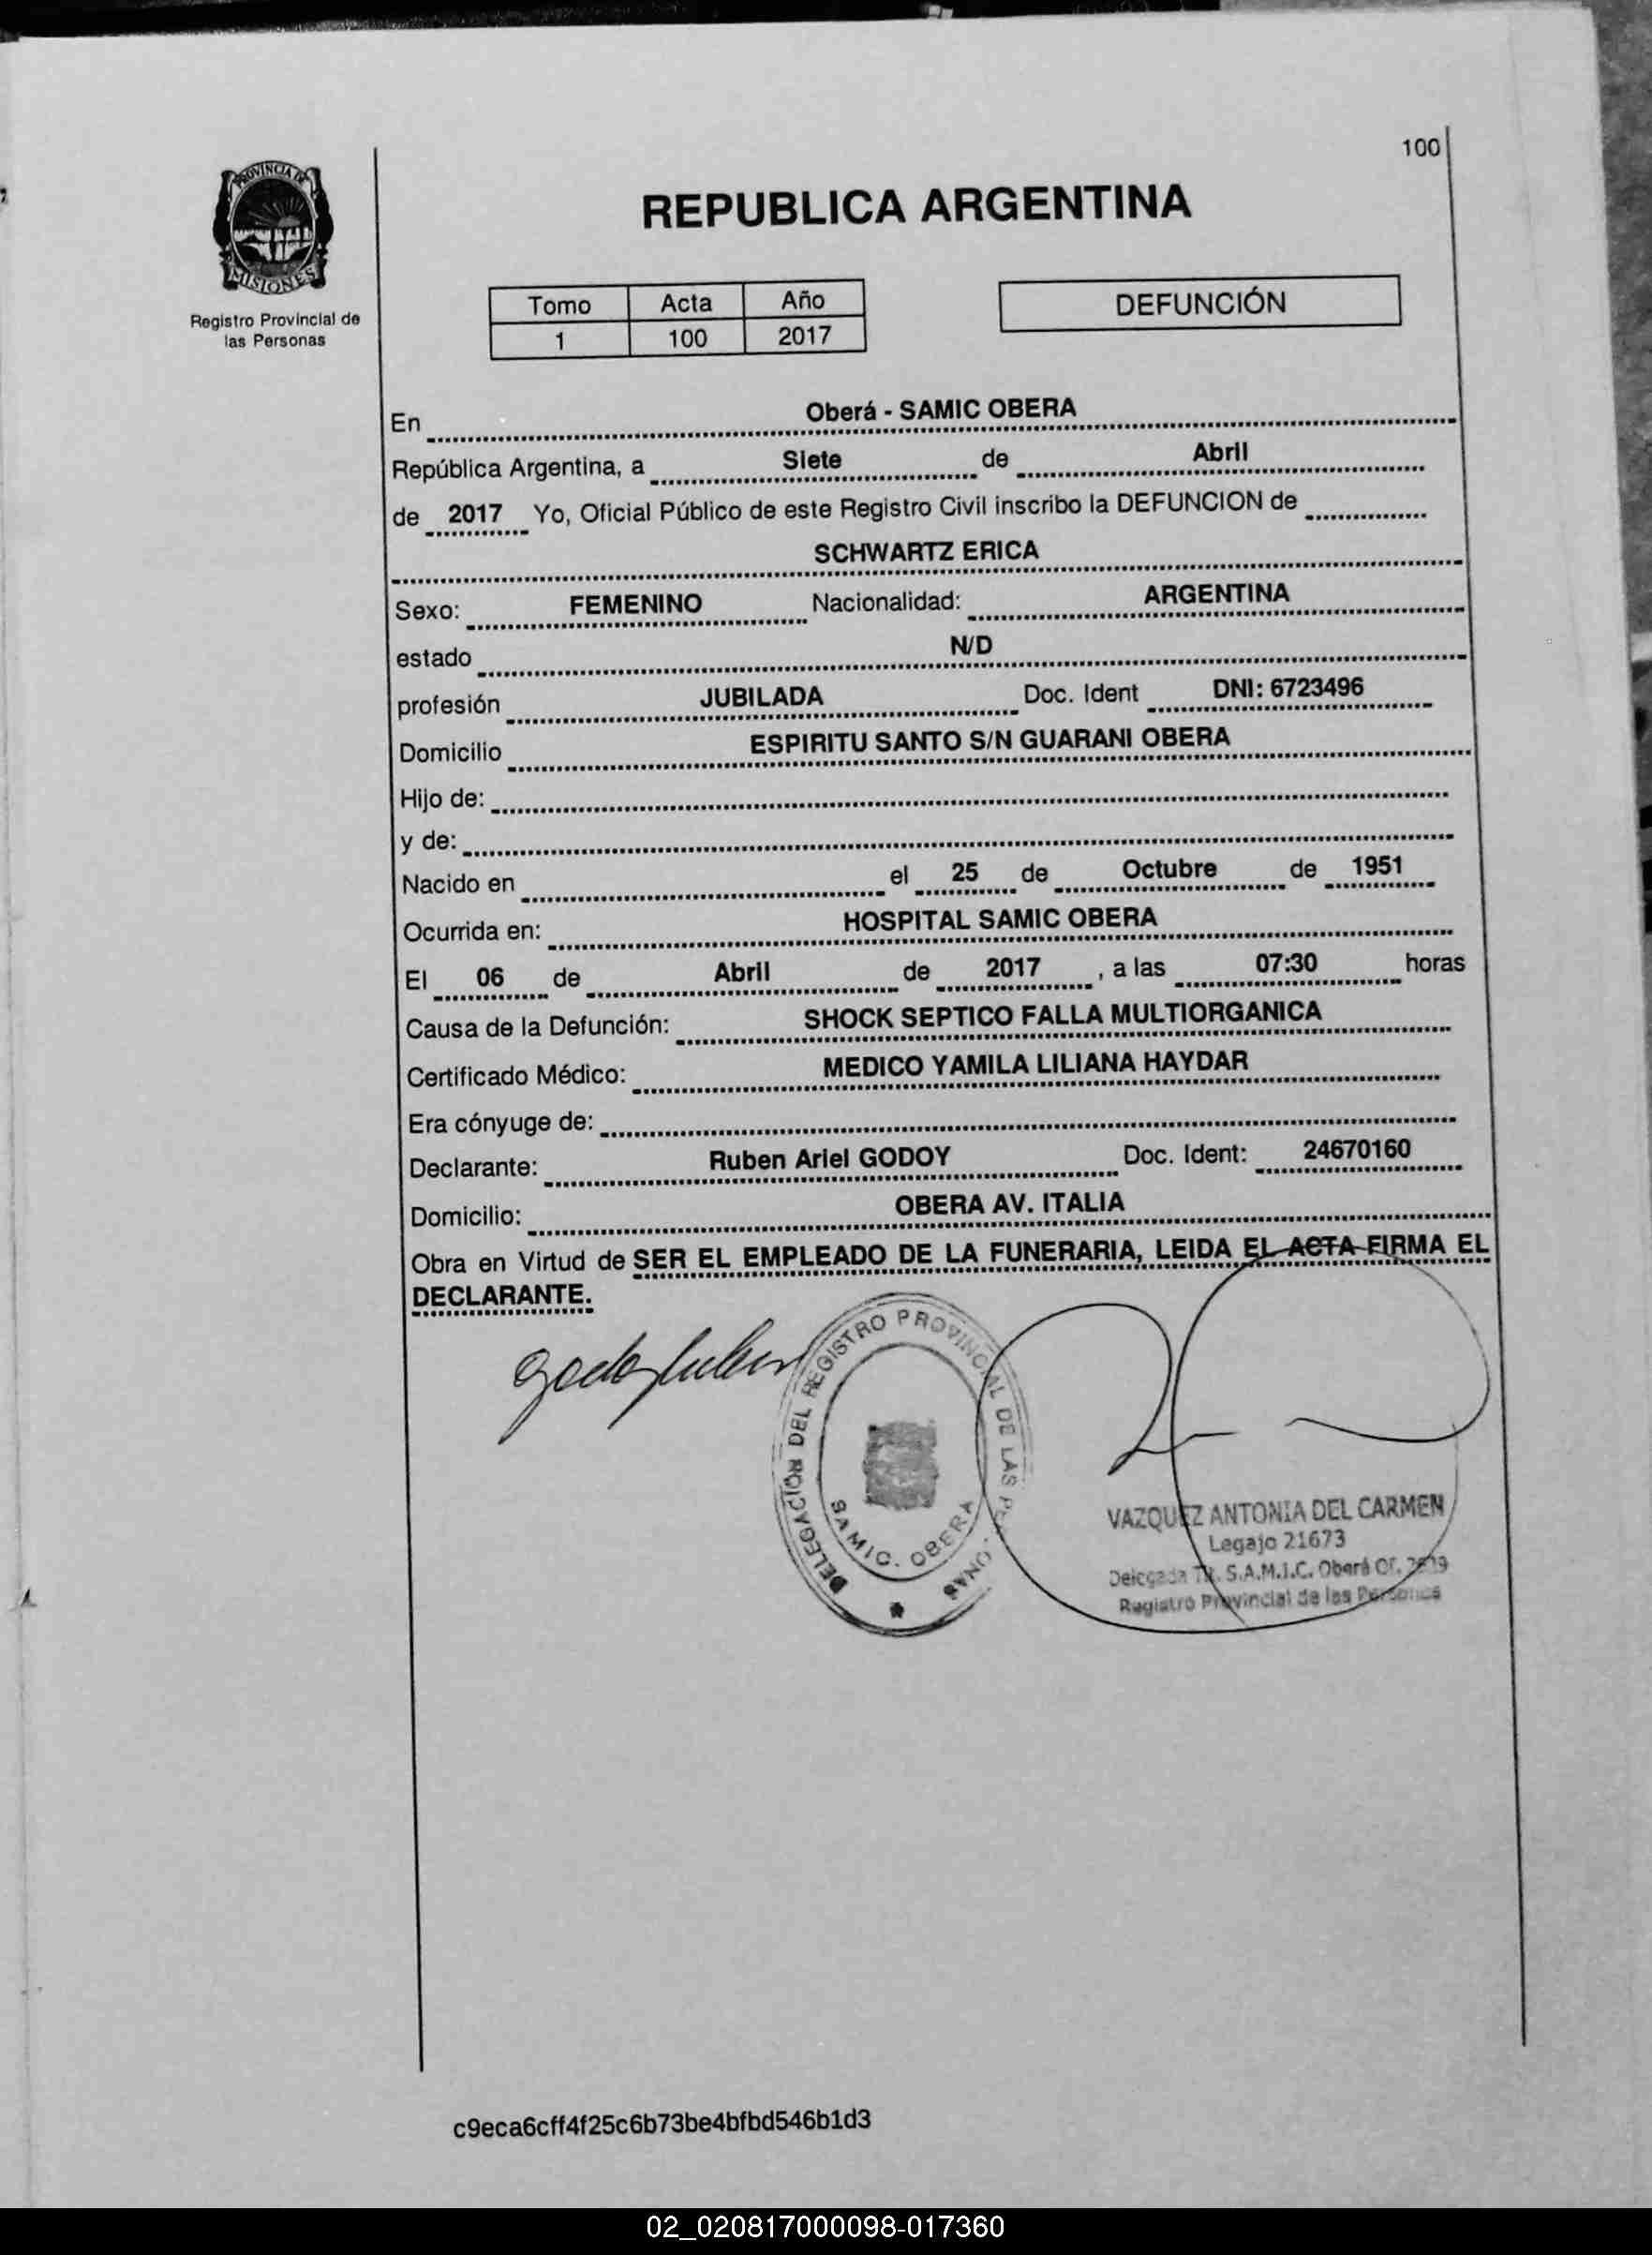 100
PROVINCIA DE
MISIONES
Registro Provincial de
las Personas
REPUBLICA ARGENTINA
Tomo Acta Año
1 100 2017
DEFUNCIÓN
En Oberá - SAMIC OBERA
República Argentina, a Siete de Abril
de 2017 Yo, Oficial Público de este Registro Civil inscribo la DEFUNCION de
SCHWARTZ ERICA
Sexo: FEMENINO Nacionalidad: ARGENTINA
estado N/D
profesión JUBILADA Doc. Ident DNI: 6723496
Domicilio ESPIRITU SANTO S/N GUARANI OBERA
Hijo de:
y de:
Nacido en el 25 de Octubre de 1951
Ocurrida en: HOSPITAL SAMIC OBERA
El 06 de Abril de 2017 , a las 07:30 horas
Causa de la Defunción: SHOCK SEPTICO FALLA MULTIORGANICA
Certificado Médico: MEDICO YAMILA LILIANA HAYDAR
Era cónyuge de:
Declarante: Ruben Ariel GODOY Doc. Ident: 24670160
Domicilio: OBERA AV. ITALIA
Obra en Virtud de SER EL EMPLEADO DE LA FUNERARIA, LEIDA EL ACTA FIRMA EL
DECLARANTE.
DELEGACIÓN DEL REGISTRO PROVINCIAL DE LAS
SAMIC. OBERA
VAZQUEZ ANTONIA DEL CARMEN
Legajo 21673
Delegada S.A.M.I.C. Oberá
Registro Provincial de las Personas
c9eca6cff4f25c6b73be4bfbd546b1d3
02_020817000098-017360